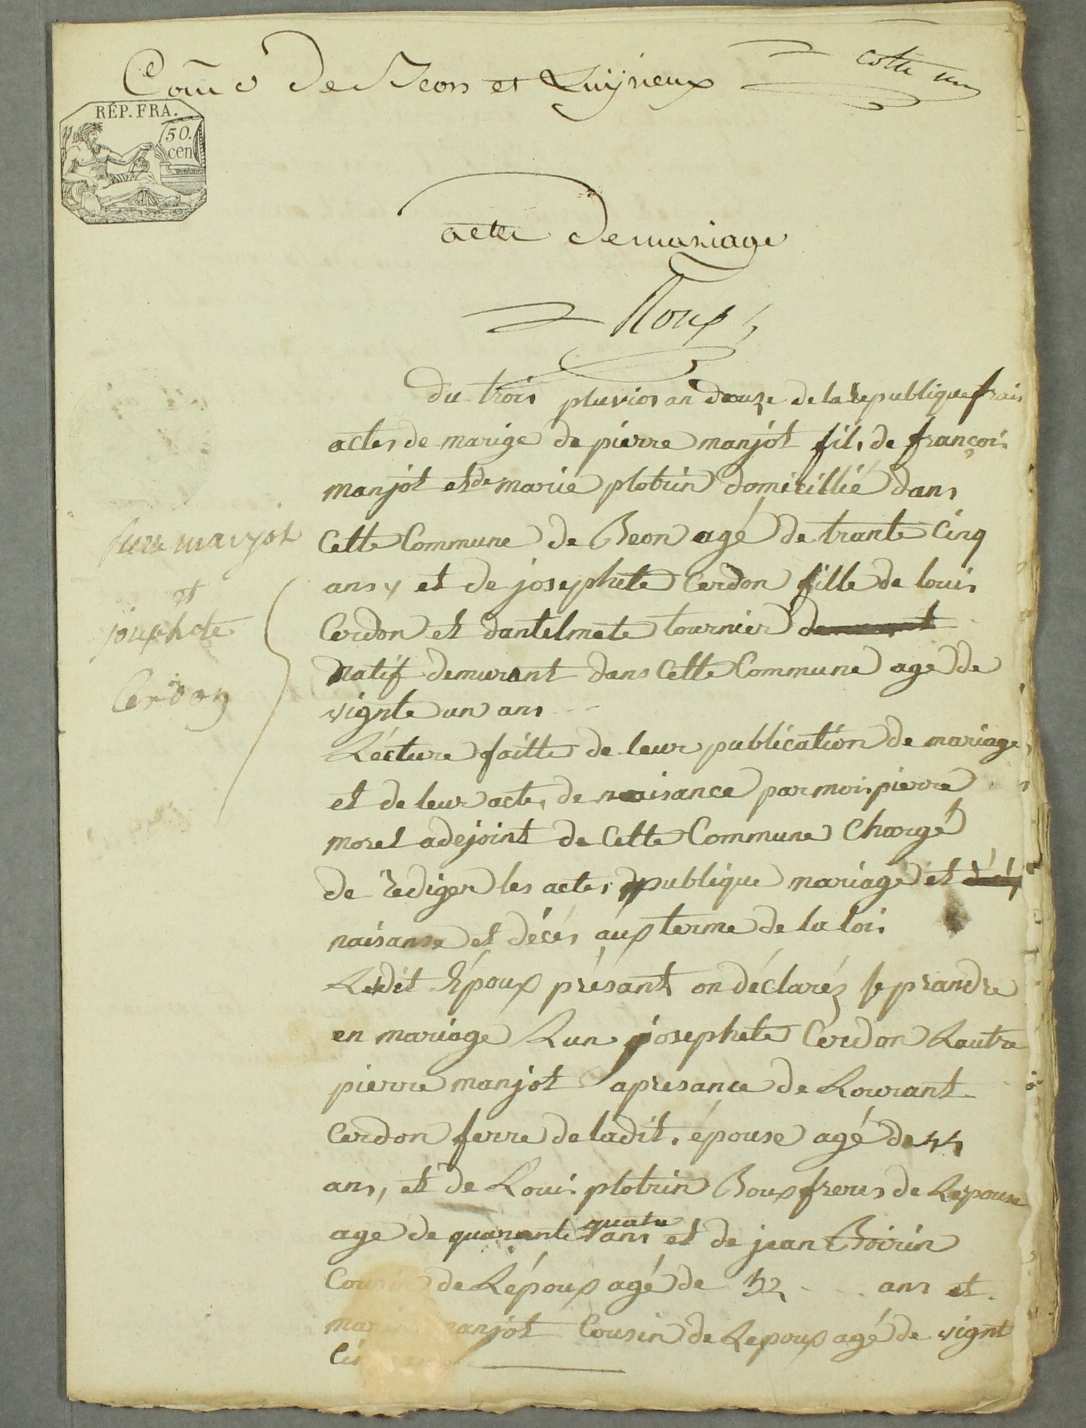 Com̄e De Beon et Luyrieux
cotte un
RÉP. FRA.
50.
cen
acte De mariage
Roux
du trois pluvios an douze de la republique frais
actes de marige de pierre manjot fils de françois
manjot et de marie plotin domicillié dans
Cette Commune de Beon agé de trante Cinq
ans et de josephete Cerdon fille de louis
Cerdon et dantelmete tournier
natif demurant dans Cette Commune age de
vignte un ans
Lécture faitte de leur publication de mariage
et de leur acte, de naisance par moi pierre
morel adejoint de Cette Commune Chargé
de rediger les actes publique mariage et
naisanse et décés aux terme de la loi
Ledit Époux présant on déclaréz se prandre
en mariage Lun josephete Cerdon Lautre
pierre manjot a presance de Lourant
Cerdon ferre de ladit, épouse agé de 44
ans, et de Loui plotin Boux freres de Lepouse
age de quarante quatre ans et de jean Boirin
Cousin de Lépoux agé de 52 ans et
manjot Cousin de Lepoux agé de vignt
pierre manjot
et
josephete
Cerdon